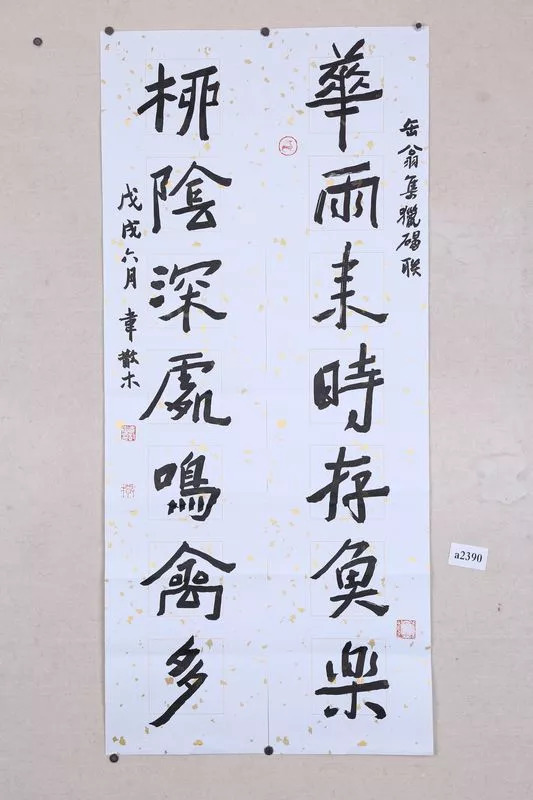 岳翁集獵碣联
華雨来時存魚楽
柳陰深處鳴禽多
戊戌六月 韋散木
a2390